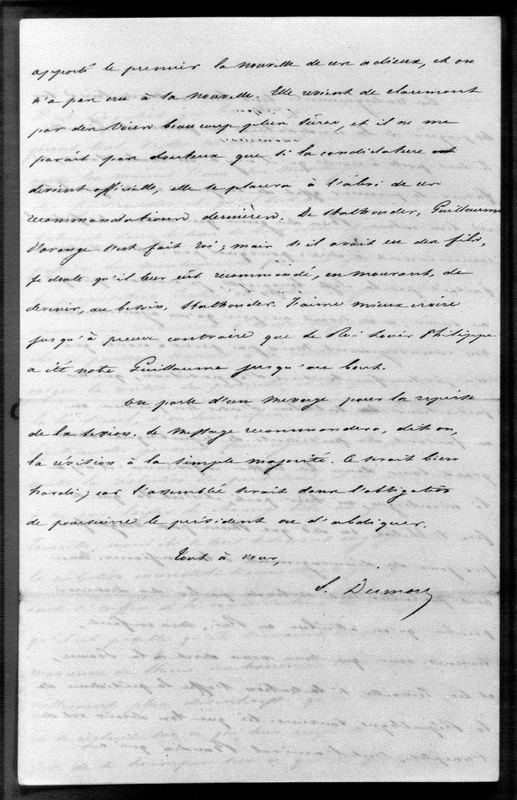 apporté le premier la nouvelle de ces adieux, et on
n'a pas cru à la nouvelle. Elle revient de Claremont
par des voies beaucoup plus sûres, et il ne me
paraît pas douteux que si la candidature
devient officielle, elle se placera à l'abri de ces
recommandations dernières. De Stathouder, Guillaume
d'orange s'est fait roi; mais s'il avait eu des fils,
je doute qu'il leur eût recommandé, en mourant, de
devenir, au besoin, Stathouder. J'aime mieux croire
jusqu'à preuve contraire que le Roi Louis Philippe
a été notre Guillaume jusqu'au bout.
On parle d'un message pour la reprise
de la session. Le message recommandera, dit on,
la révision à la simple majorité. Ce serait bien
hardi; car l'assemblée serait dans l'obligation
de poursuivre le président ou d'abdiquer.
Tout à vous,
S. Dumon